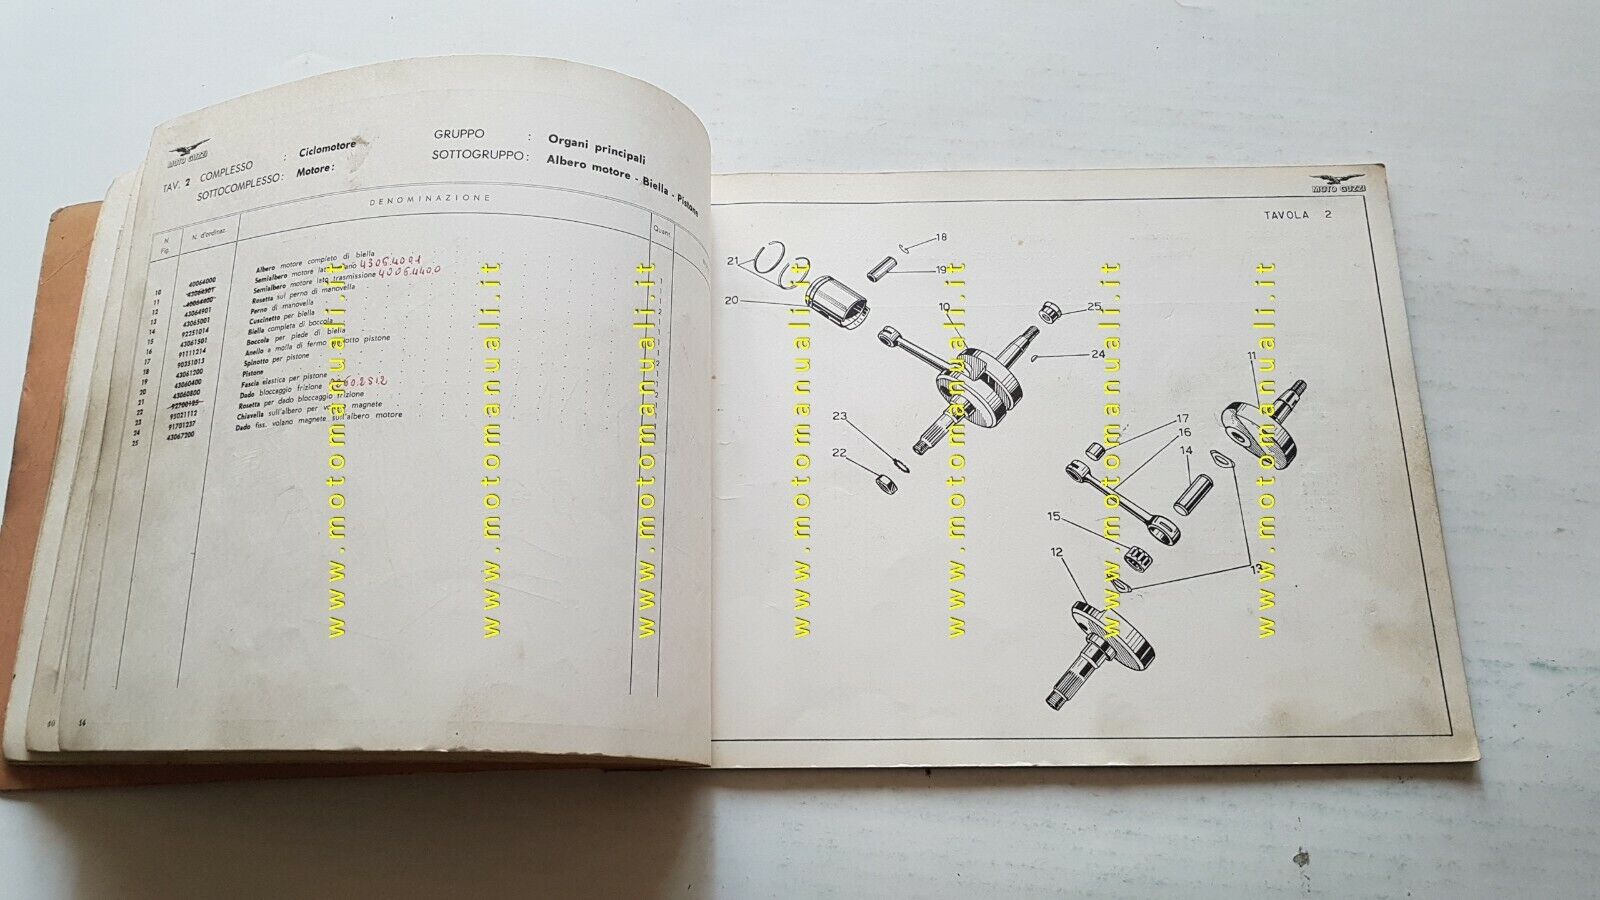 MOTO GUZZI
TAV. 2 COMPLESSO : Ciclomotore
SOTTOCOMPLESSO: Motore:
GRUPPO : Organi principali
SOTTOGRUPPO: Albero motore - Biella - Pistone
N. Fig. N. d'ordinaz. DENOMINAZIONE Quant.
10 40064000 Albero motore completo di biella
11 Semialbero motore lato volano
12 40064400 Semialbero motore lato trasmissione 40064400
13 43064901 Rosetta sul perno di manovella
14 43065001 Perno di manovella
15 92251014 Cuscinetto per biella
16 43061501 Biella completa di boccola
17 91111214 Boccola per piede di biella
18 90351013 Anello a molla di fermo spinotto pistone
19 43061200 Spinotto per pistone
20 43060400 Pistone
21 43060800 Fascia elastica per pistone
22 Dado bloccaggio frizione
23 95021112 Rosetta per dado bloccaggio frizione
24 91701237 Chiavella sull'albero per volano magnete
25 43067200 Dado fiss. volano magnete sull'albero motore
14
MOTO GUZZI
TAVOLA 2
18
21
19
20
10
25
24
11
23
17
16
22
14
15
12
13
www.motomanuali.it
www.motomanuali.it
www.motomanuali.it
www.motomanuali.it
www.motomanuali.it
www.motomanuali.it
www.motomanuali.it